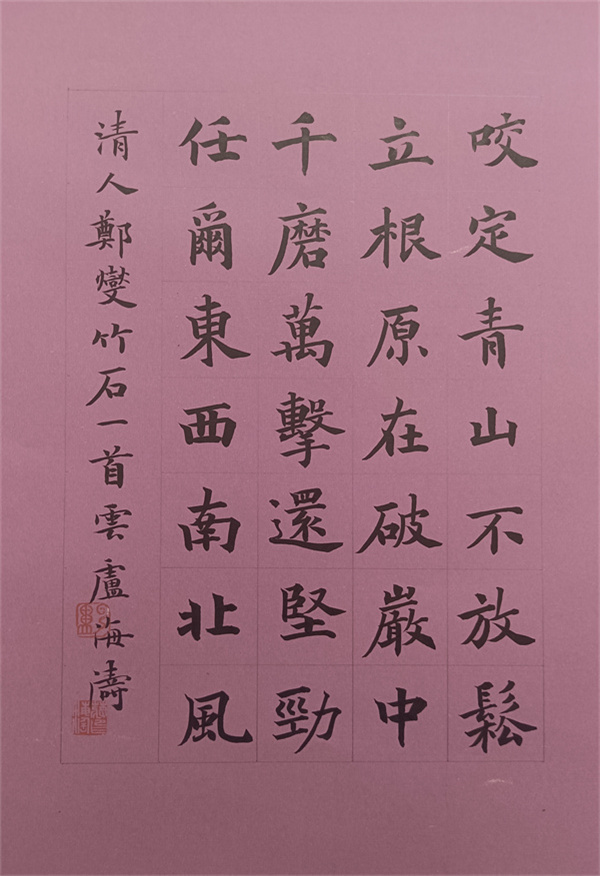 咬定青山不放鬆
立根原在破巖中
千磨萬擊還堅勁
任爾東西南北風
清人鄭燮竹石一首雲盧海濤